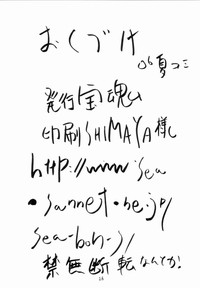 おくづけ
06夏コミ
発行宝魂ム
印刷SHIMAYA様
http://www.sea
・sannet・ne.jp/
sea-boh-j/
禁無断転なんとか!
24